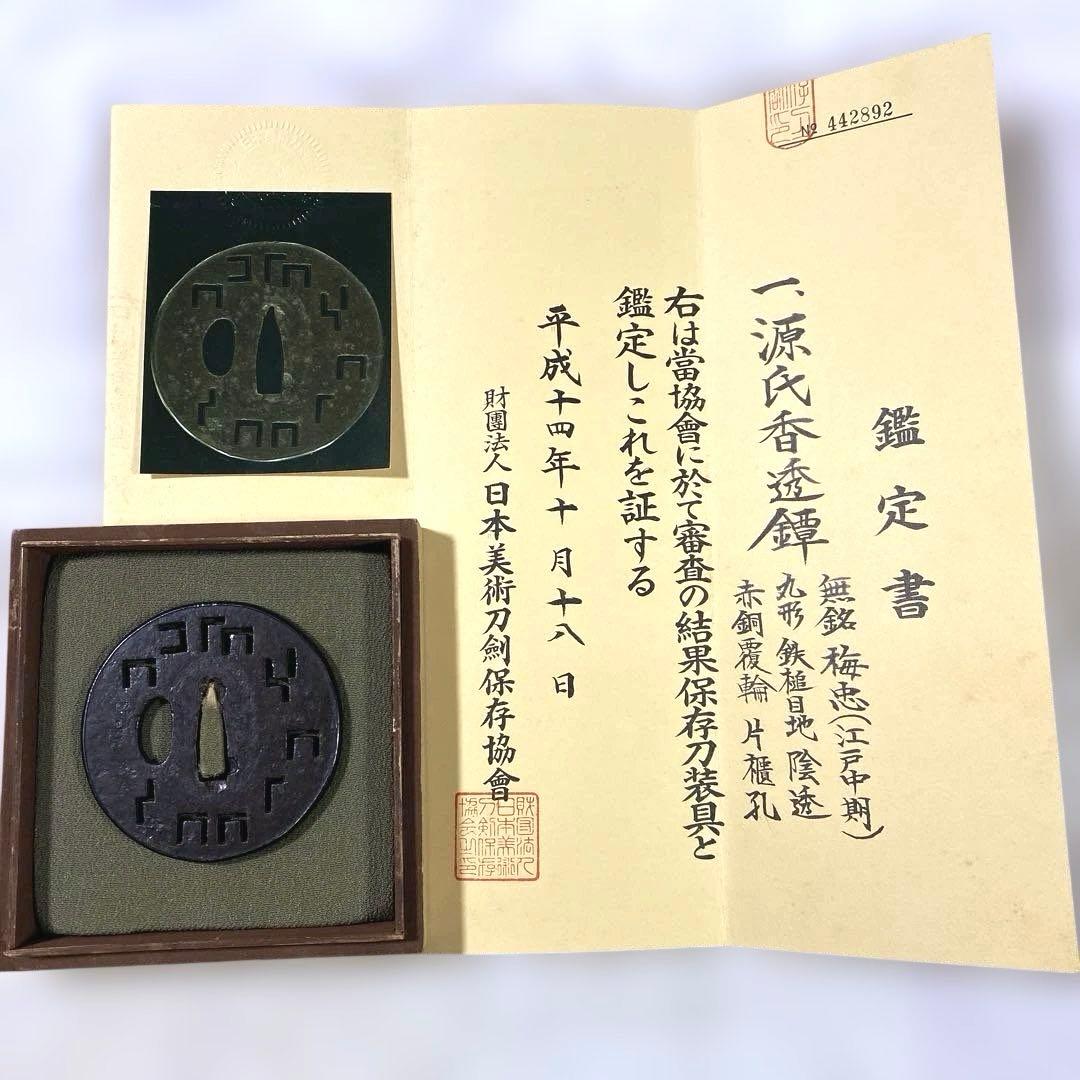 № 442892
鑑定書
一、源氏香透鐔
無銘 梅忠(江戸中期)
丸形 鉄槌目地 陰透
赤銅覆輪 片櫃孔
右は當協會に於て審査の結果保存刀装具と
鑑定しこれを証する
平成十四年十月十八日
財團法人日本美術刀劍保存協會
財団法人
日本美術
刀剣保存
協会之印